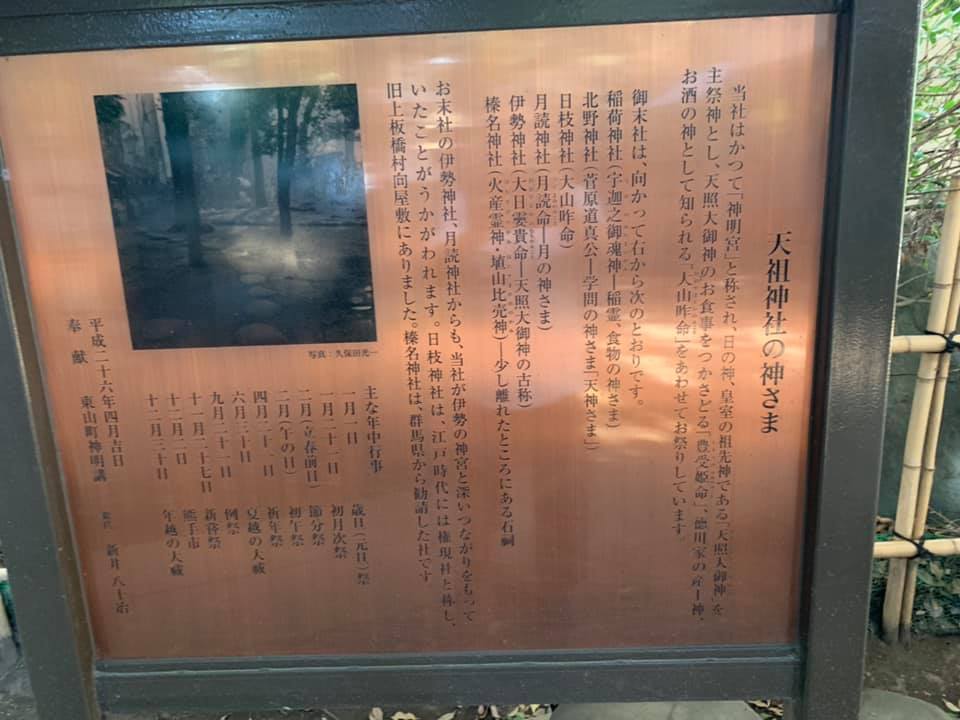 天祖神社の神さま
当社はかつて「神明宮」と称され、日の神、皇室の祖先神である「天照大御神」を
主祭神とし、天照大御神のお食事をつかさどる「豊受姫命」、徳川家の産土神、
お酒の神として知られる「大山咋命」をあわせてお祭りしています。
御末社は、向かって右から次のとおりです。
稲荷神社(宇迦之御魂神―稲霊、食物の神さま)
北野神社(菅原道真公―学問の神さま「天神さま」)
日枝神社(大山咋命)
月読神社(月読命―月の神さま)
伊勢神社(大日孁貴命―天照大御神の古称)
榛名神社(火産霊神・埴山比売神)―少し離れたところにある石祠
お末社の伊勢神社、月読神社からも、当社が伊勢の神宮と深いつながりをもって
いたことがうかがわれます。日枝神社は、江戸時代には権現社と称し、
旧上板橋村向屋敷にありました。榛名神社は、群馬県から勧請した社です
写真:久保田光一
主な年中行事
一月一日 歳旦(元旦)祭
一月二十一日 初月次祭
二月(立春前日) 節分祭
二月(午の日) 初午祭
四月二十一日 祈年祭
六月三十日 夏越の大祓
九月二十一日 例祭
十一月二十七日 新嘗祭
十二月二日 熊手市
十二月三十日 年越の大祓
平成二十六年四月吉日
奉献 東山町神明講
新井 八十治